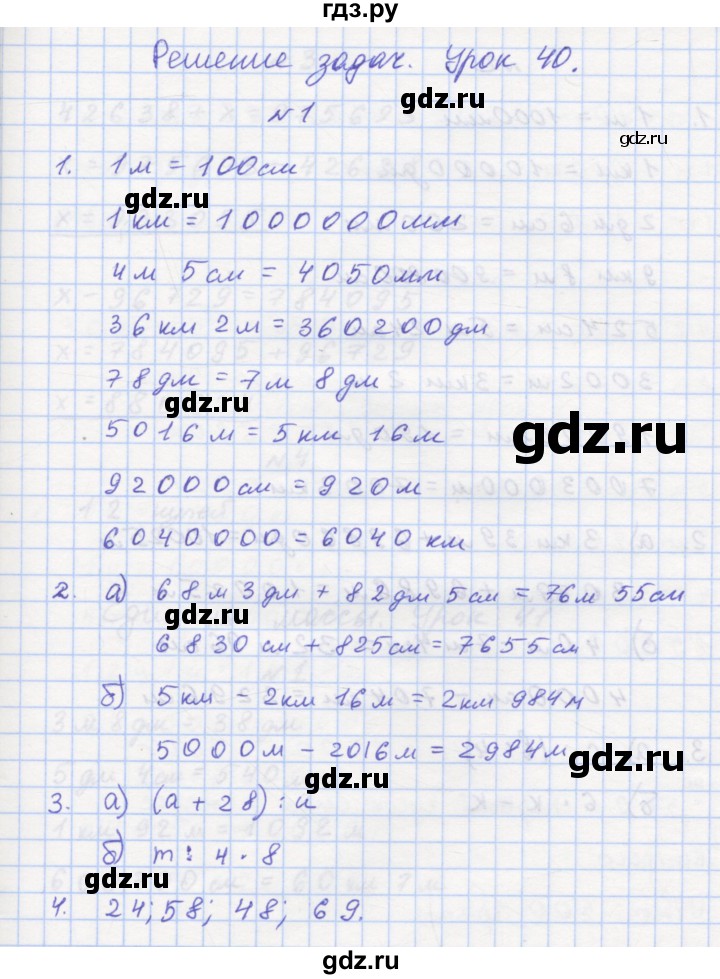 гдз.ру
Решение задач. Урок 40.
gdz.ru
№1
gdz.ru
1. 1м = 100см
gdz.ru
1км = 1000000мм
4м 5см = 4050мм
36км 2м = 360200дм
78дм = 7м 8дм
gdz.ru
5016м = 5км 16м
gdz.ru
92000см = 920м
6040000 = 6040 км
2. а) 68м 3дм + 82дм 5см = 76м 55см
gdz.ru
6830 см + 825см = 7655см
б) 5км - 2км 16м = 2км 984м
5000м - 2016м = 2984м
gdz.ru
3. а) (a + 28) : n
б) m : 4 · 8
gdz.ru
4. 24; 58; 48; 69.
gdz.ru
gdz.ru